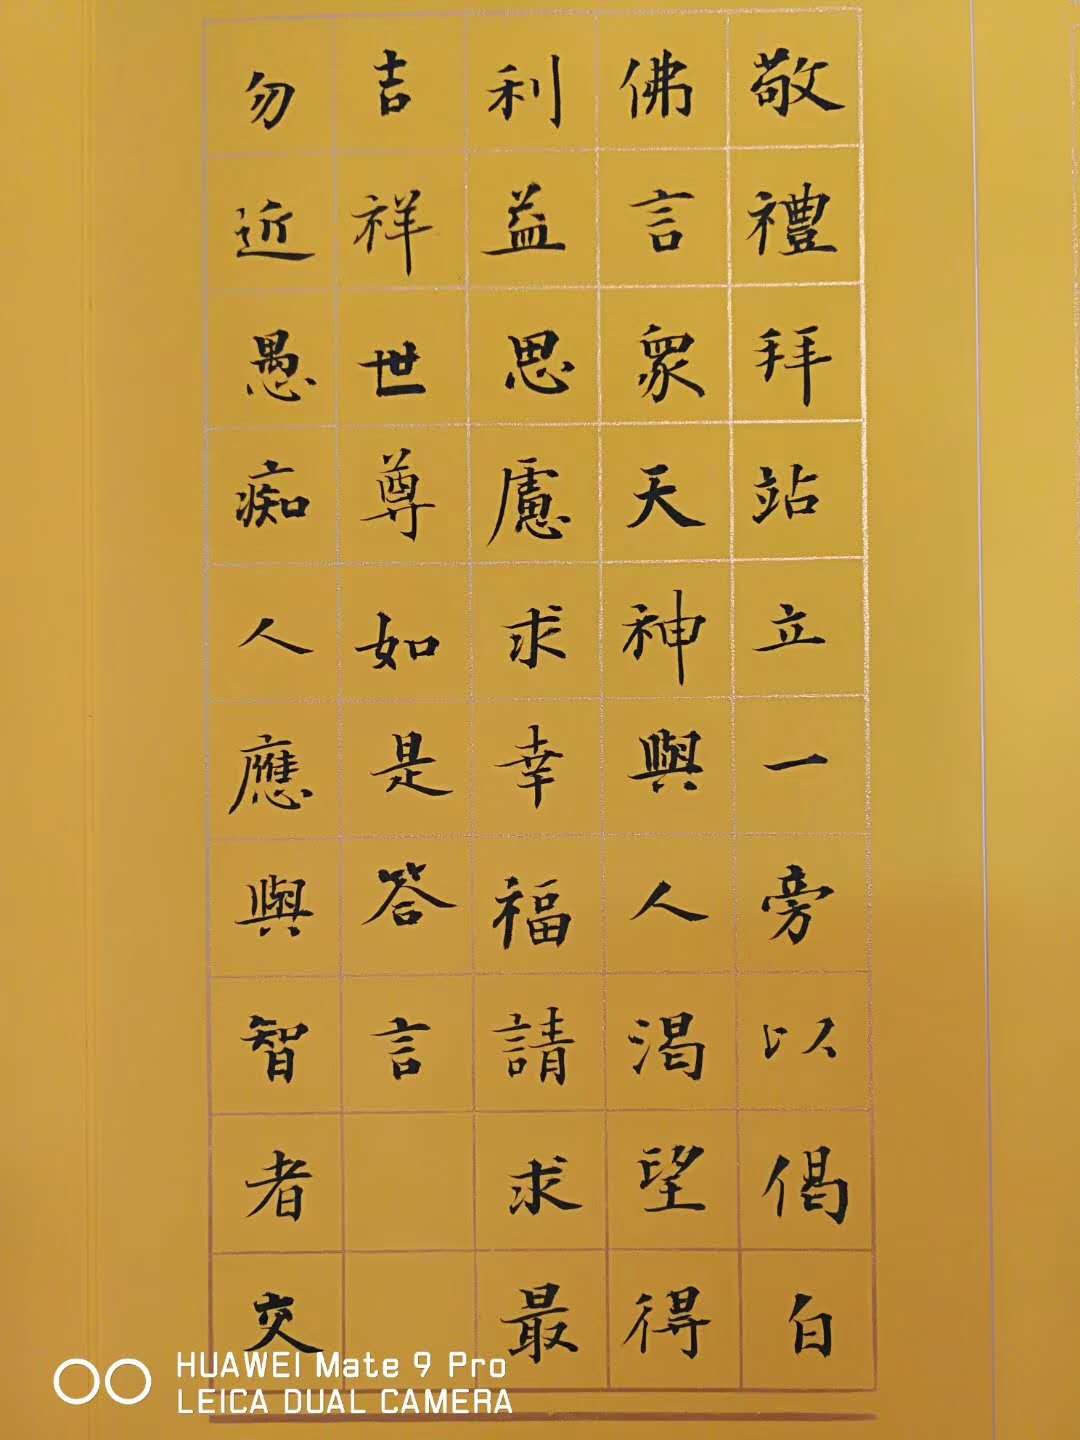 敬禮拜站立一旁以偈白
佛言衆天神與人渴望得
利益思慮求幸福請求最
吉祥世尊如是答言
勿近愚痴人應與智者交
HUAWEI Mate 9 Pro
LEICA DUAL CAMERA